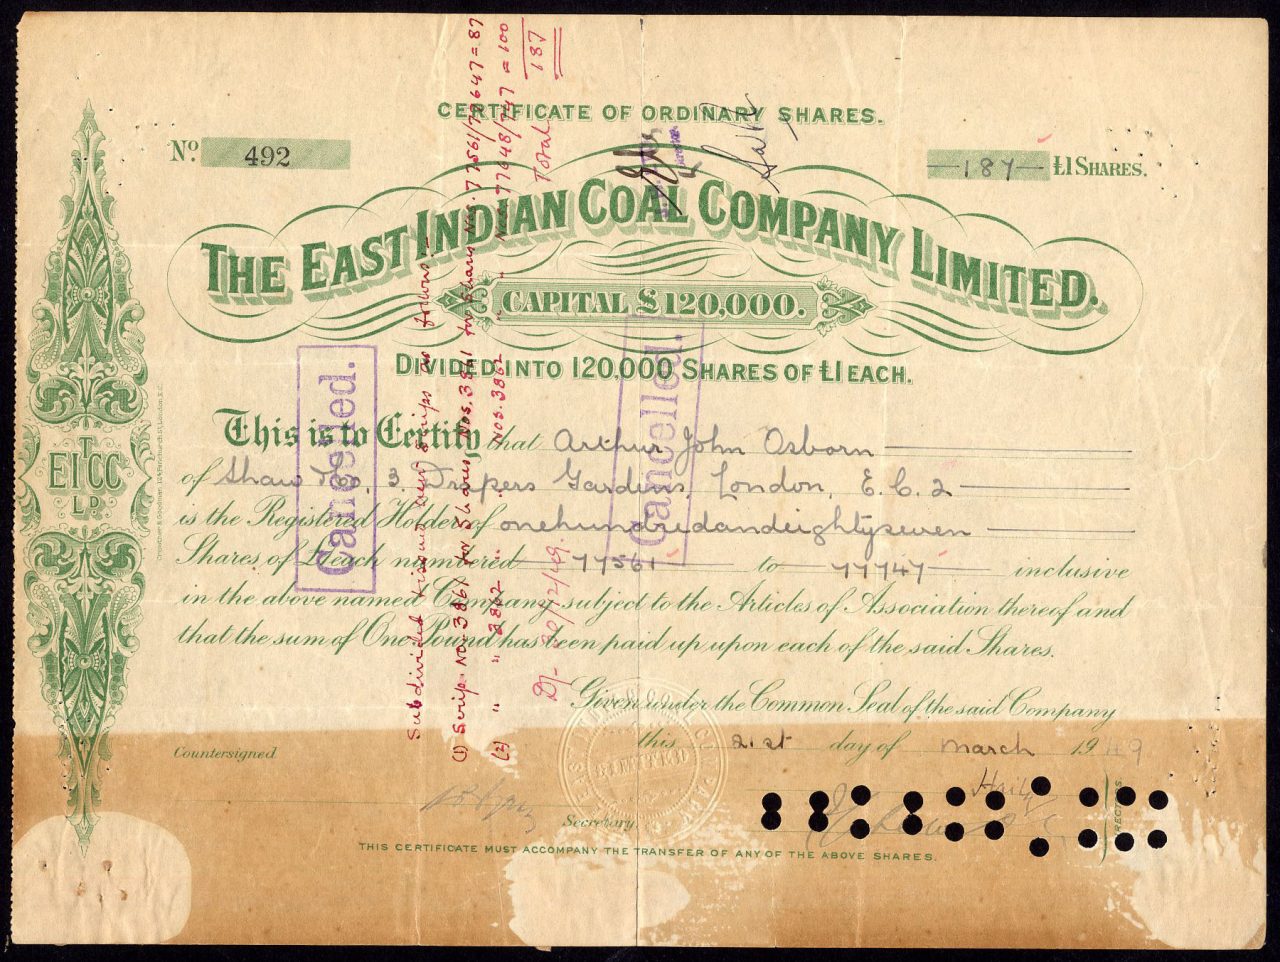 CERTIFICATE OF ORDINARY SHARES.
No. 492
187 £1 SHARES.
THE EAST INDIAN COAL COMPANY LIMITED.
CAPITAL £120,000.
DIVIDED INTO 120,000 SHARES OF £1 EACH.
This is to Certify that Arthur John Osborn
of Shaw Ho, 3 Drapers Gardens, London, E.C.2
is the Registered Holder of onehundredandeightyseven
Shares of £1 each numbered 77561 to 77747 inclusive
in the above named Company subject to the Articles of Association thereof and
that the sum of One Pound has been paid up upon each of the said Shares.
Given under the Common Seal of the said Company
this 21st day of March 1949
Countersigned
Secretary.
THIS CERTIFICATE MUST ACCOMPANY THE TRANSFER OF ANY OF THE ABOVE SHARES.
EICC
LD.
Cancelled.
Cancelled.
Subdivided & issued new scrips as follows:-
(1) Scrip No. 3861 for Shares Nos. 77561/77647 = 87
(2) " " 3862 " " Nos. 77648/747 = 100
Total 187
20/12/49.
EAST INDIAN COAL COMPANY
LIMITED